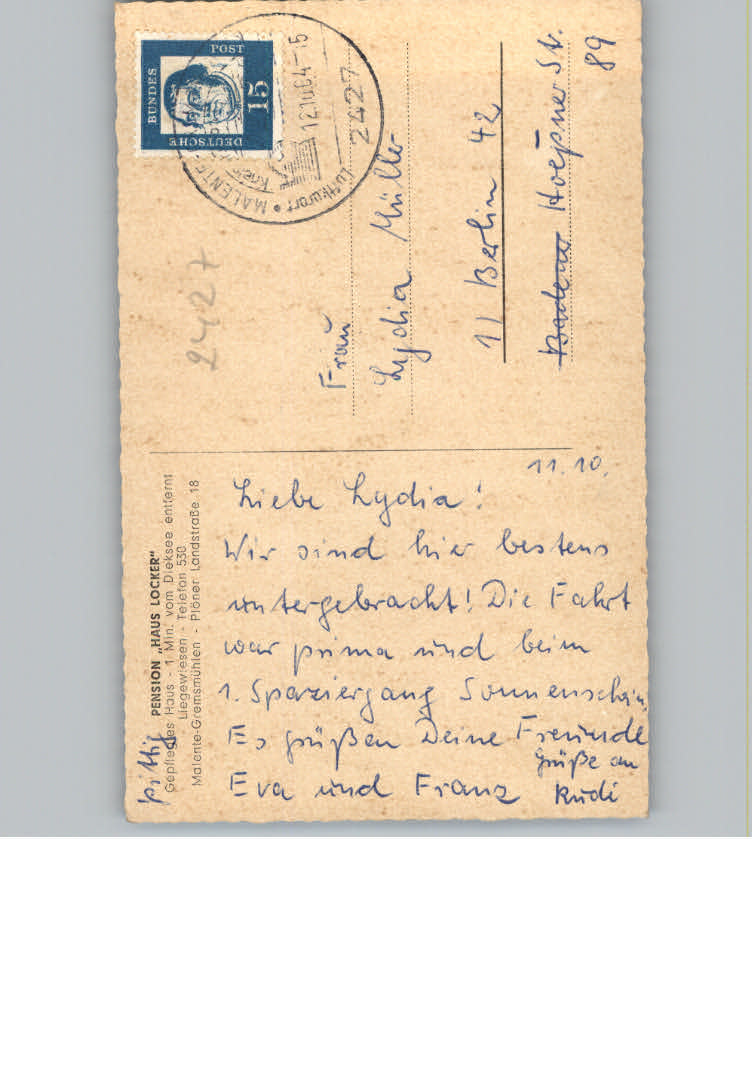 DEUTSCHE
BUNDES
POST
15
12.10.64-15
2427
Luftkurort • MALENTE
2427
Frau
Lydia Müller
11 Berlin 42
Hoepner Str.
89
PENSION „HAUS LOCKER"
Gepflegtes Haus - 1 Min. vom Dieksee entfernt
Liegewiesen - Telefon 530
Malente-Gremsmühlen - Plöner Landstraße 18
11.10.
Liebe Lydia!
Wir sind hier bestens
untergebracht! Die Fahrt
war prima und beim
1. Spaziergang Sonnenschein.
Es grüßen Deine Freunde
Eva und Franz
Grüße an
Rudi